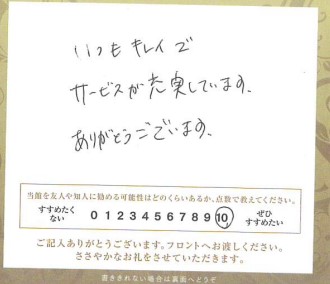 いつもキレイで
サービスが充実しています。
ありがとうございます。
当館を友人や知人に勧める可能性はどのくらいあるか、点数で教えてください。
すすめたく
ない
0 1 2 3 4 5 6 7 8 9 10
ぜひ
すすめたい
ご記入ありがとうございます。フロントへお渡しください。
ささやかなお礼をさせていただきます。
書ききれない場合は裏面へどうぞ